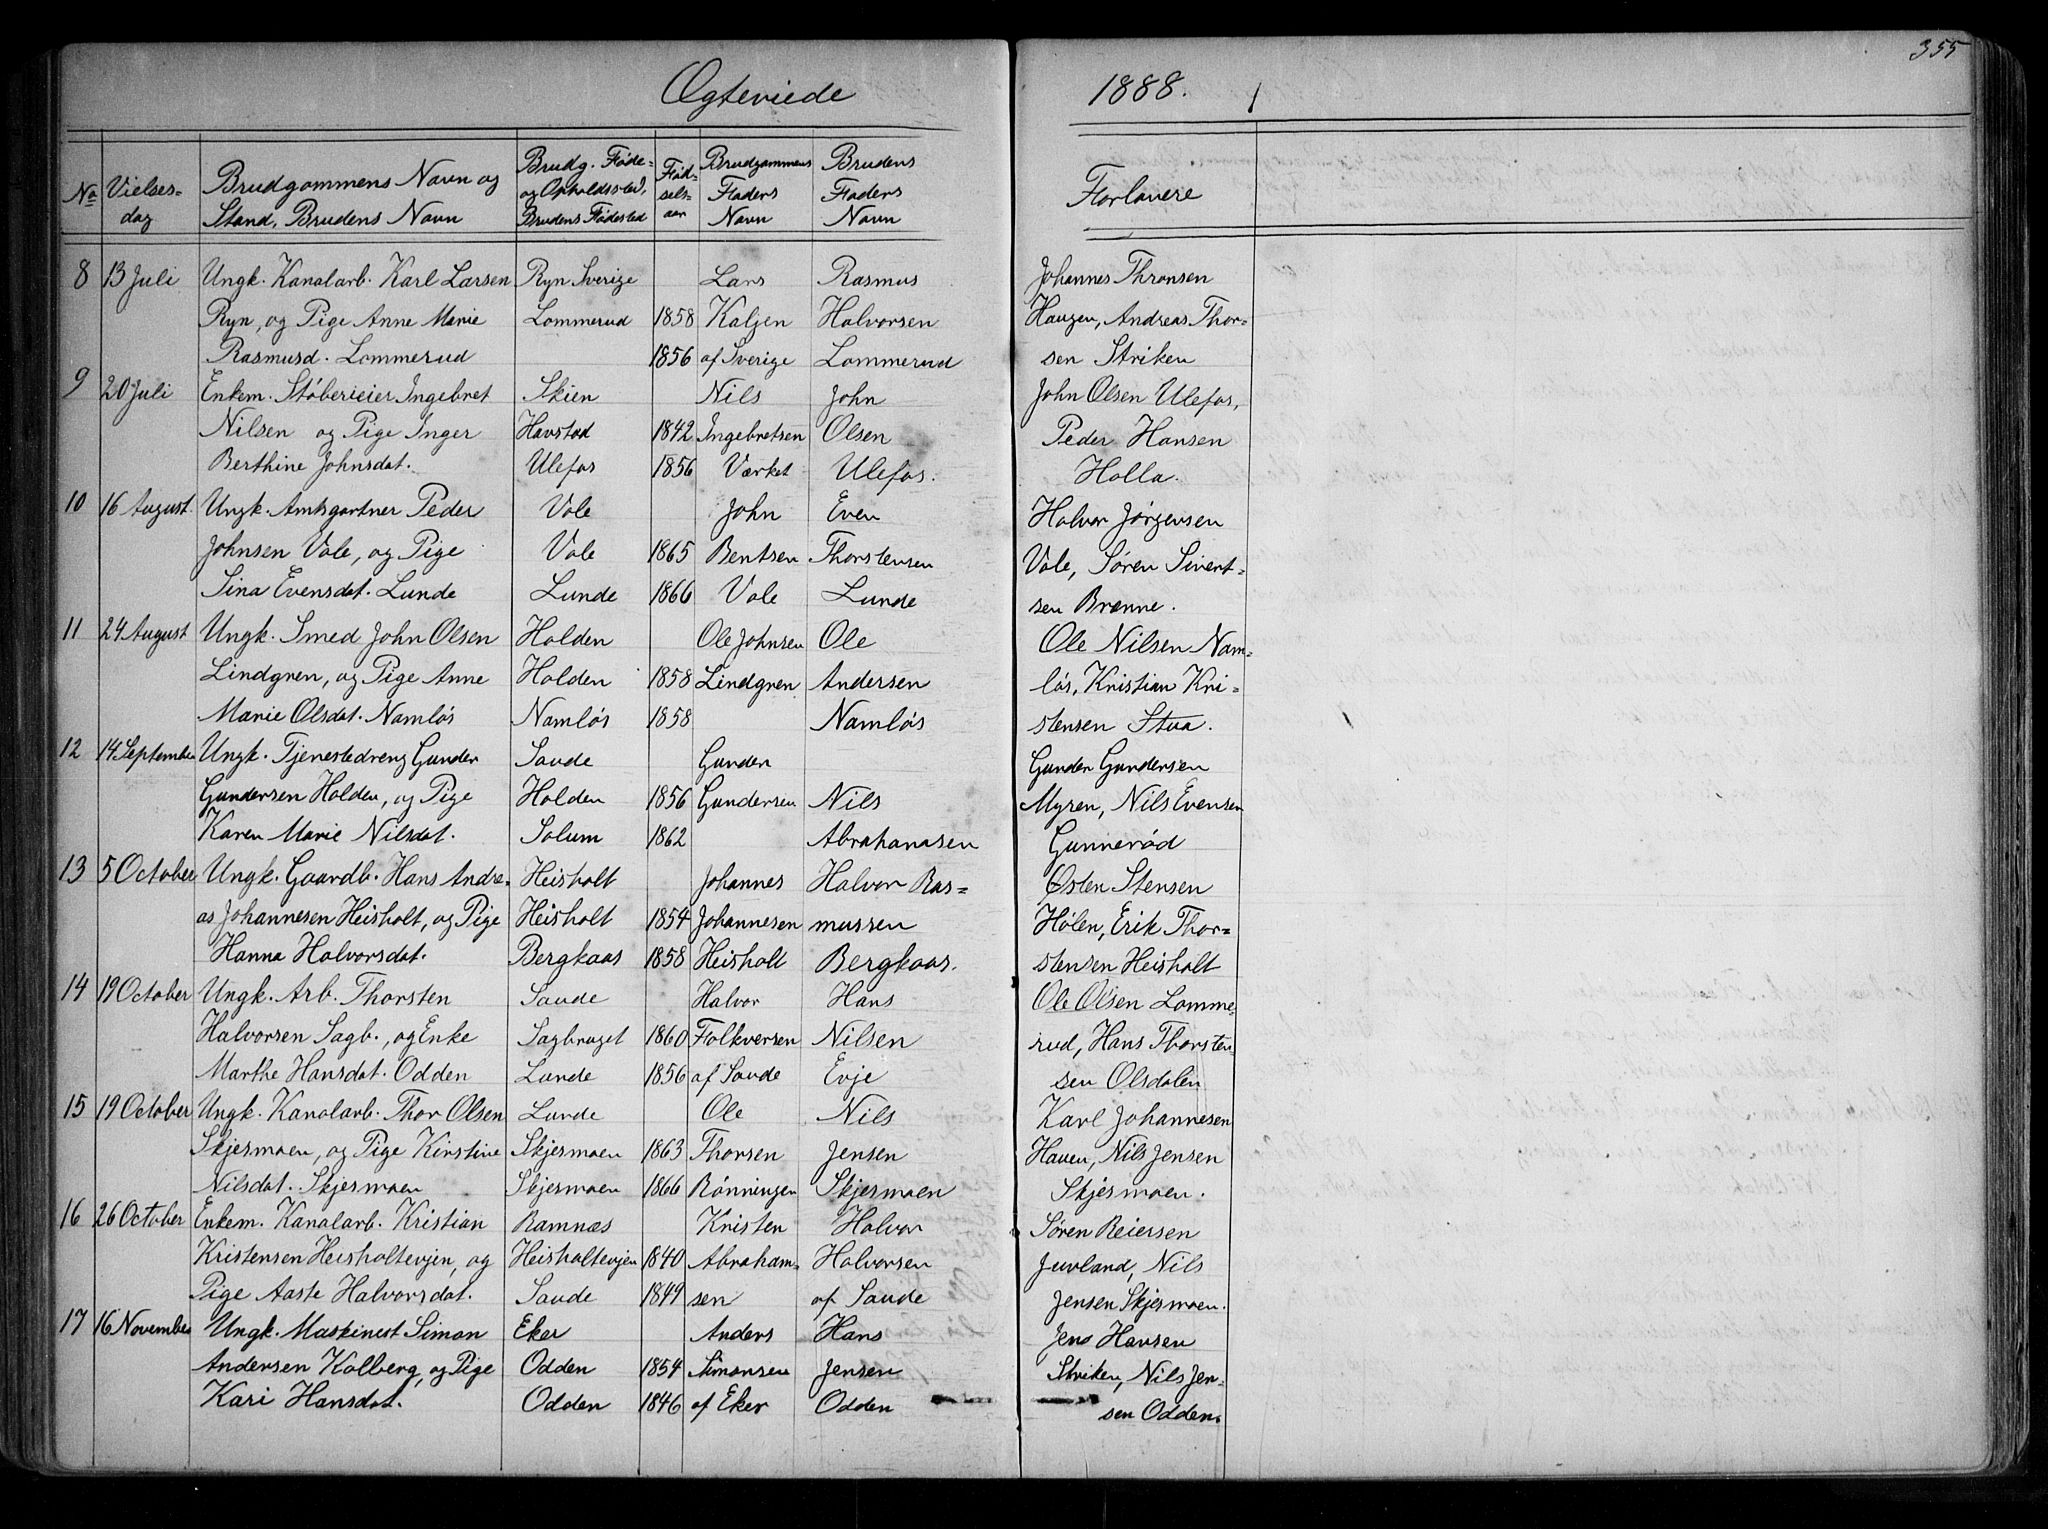 355
Ægteviede 1888.
No Vielses- Brudgommens Navn og Brudg. Føde- Fød- Brudgommens Brudens
dag Stand, Brudens Navn og Opholdssted, sels- Faders Faders Forlovere
Brudens Fødested aar Navn Navn
8 13 Juli Ungk. Kanalarb. Karl Larsen Ryn Sverige Lars Rasmus Johannes Thronsen
Ryn, og Pige Anne Marie Lommerud 1858 Kaljen Halvorsen Haugen, Andreas Thor-
Rasmusd. Lommerud 1856 af Sverige Lommerud sen Striken
9 20 Juli Enkem. Støberieier Ingebret Skien Nils John John Olsen Ulefos,
Nilsen og Pige Inger Havstad 1842 Ingebretsen Olsen Peder Hansen
Berthine Johnsdat. Ulefos 1856 Værket Ulefos. Holla.
10 16 August. Ungk. Amtsgartner Peder Vale John Even Halvor Jørgensen
Johnsen Vale, og Pige Vale 1865 Bentsen Thorstensen Vale, Søren Sivert-
Sina Evensdat. Lunde Lunde 1866 Vale Lunde sen Brenne.
11 24 August Ungk. Smed John Olsen Holden Ole Johnsen Ole Ole Nilsen Nam-
Lindgren, og Pige Anne Holden 1858 Lindgren Andersen løs, Kristian Kri-
Marie Olsdat. Namløs Namløs 1858 Namløs stensen Stua.
12 14 September Ungk. Tjenestedreng Gunder Saude Gunder Gunder Gundersen
Gundersen Holden, og Pige Holden 1856 Gundersen Nils Myren, Nils Evensen
Karen Marie Nilsdat. Solum 1862 Abrahamsen Gunnerød
13 5 October Ungk. Gaardb. Hans Andre- Heisholt Johannes Halvor Ras- Østen Stensen
as Johannesen Heisholt, og Pige Heisholt 1854 Johannesen mussen Hølen, Erik Thor-
Hanna Halvorsdat. Bergkaas 1858 Heisholt Bergkaas. stensen Heisholt
14 19 October Ungk. Arb. Thorsten Saude Halvor Hans Ole Olsen Lomme-
Halvorsen Sagb., og Enke Sagbruget 1860 Folkversen Nilsen rud, Hans Thorsten-
Marthe Hansdat. Odden Lunde 1856 af Saude Evje sen Olsdalen
15 19 October Ungk. Kanalarb. Thor Olsen Lunde Ole Nils Karl Johannesen
Skjesmoen, og Pige Kirstine Skjesmoen 1863 Thorsen Jensen Haven, Nils Jensen
Nilsdat. Skjesmoen Skjesmoen 1866 Rønningen Skjesmoen Skjesmoen.
16 26 October Enkem. Kanalarb. Kristian Ramnæs Kristen Halvor Søren Reiersen
Kristensen Heisholtevjen, og Heisholtevjen 1840 Abraham- Halvorsen Juvland, Nils
Pige Aaste Halvorsdat. Saude 1849 sen af Saude Jensen Skjesmoen.
17 16 November Ungk. Maskinest Simon Eker Anders Hans Jens Hansen
Andersen Kolberg, og Pige Odden 1854 Simonsen Jensen Striken, Nils Jen-
Kari Hansdat. Odden 1846 af Eker Odden sen Odden.